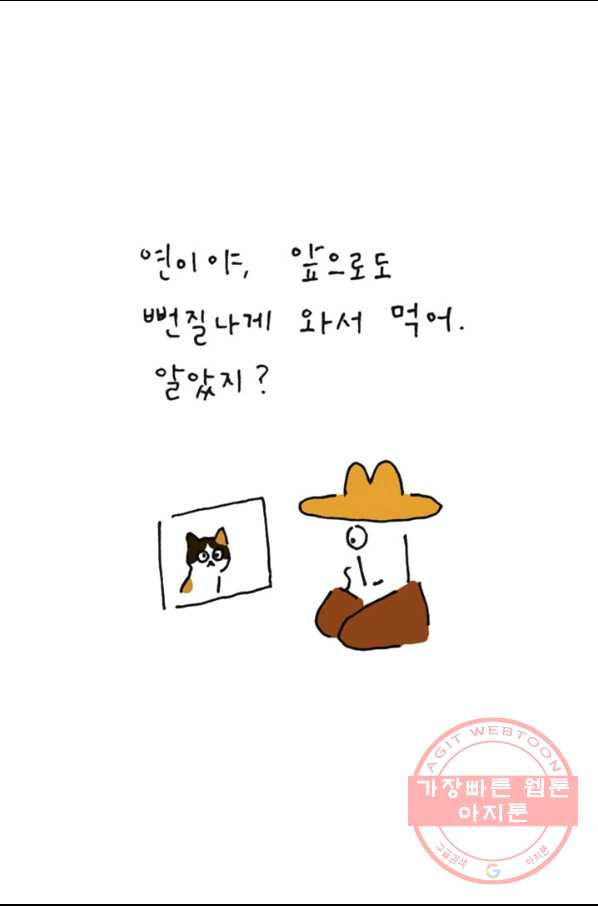 연이야, 앞으로도
뻔질나게 와서 먹어.
알았지?
AGIT WEBTOON
가장빠른 웹툰
아지툰
구글검색 G 아지툰